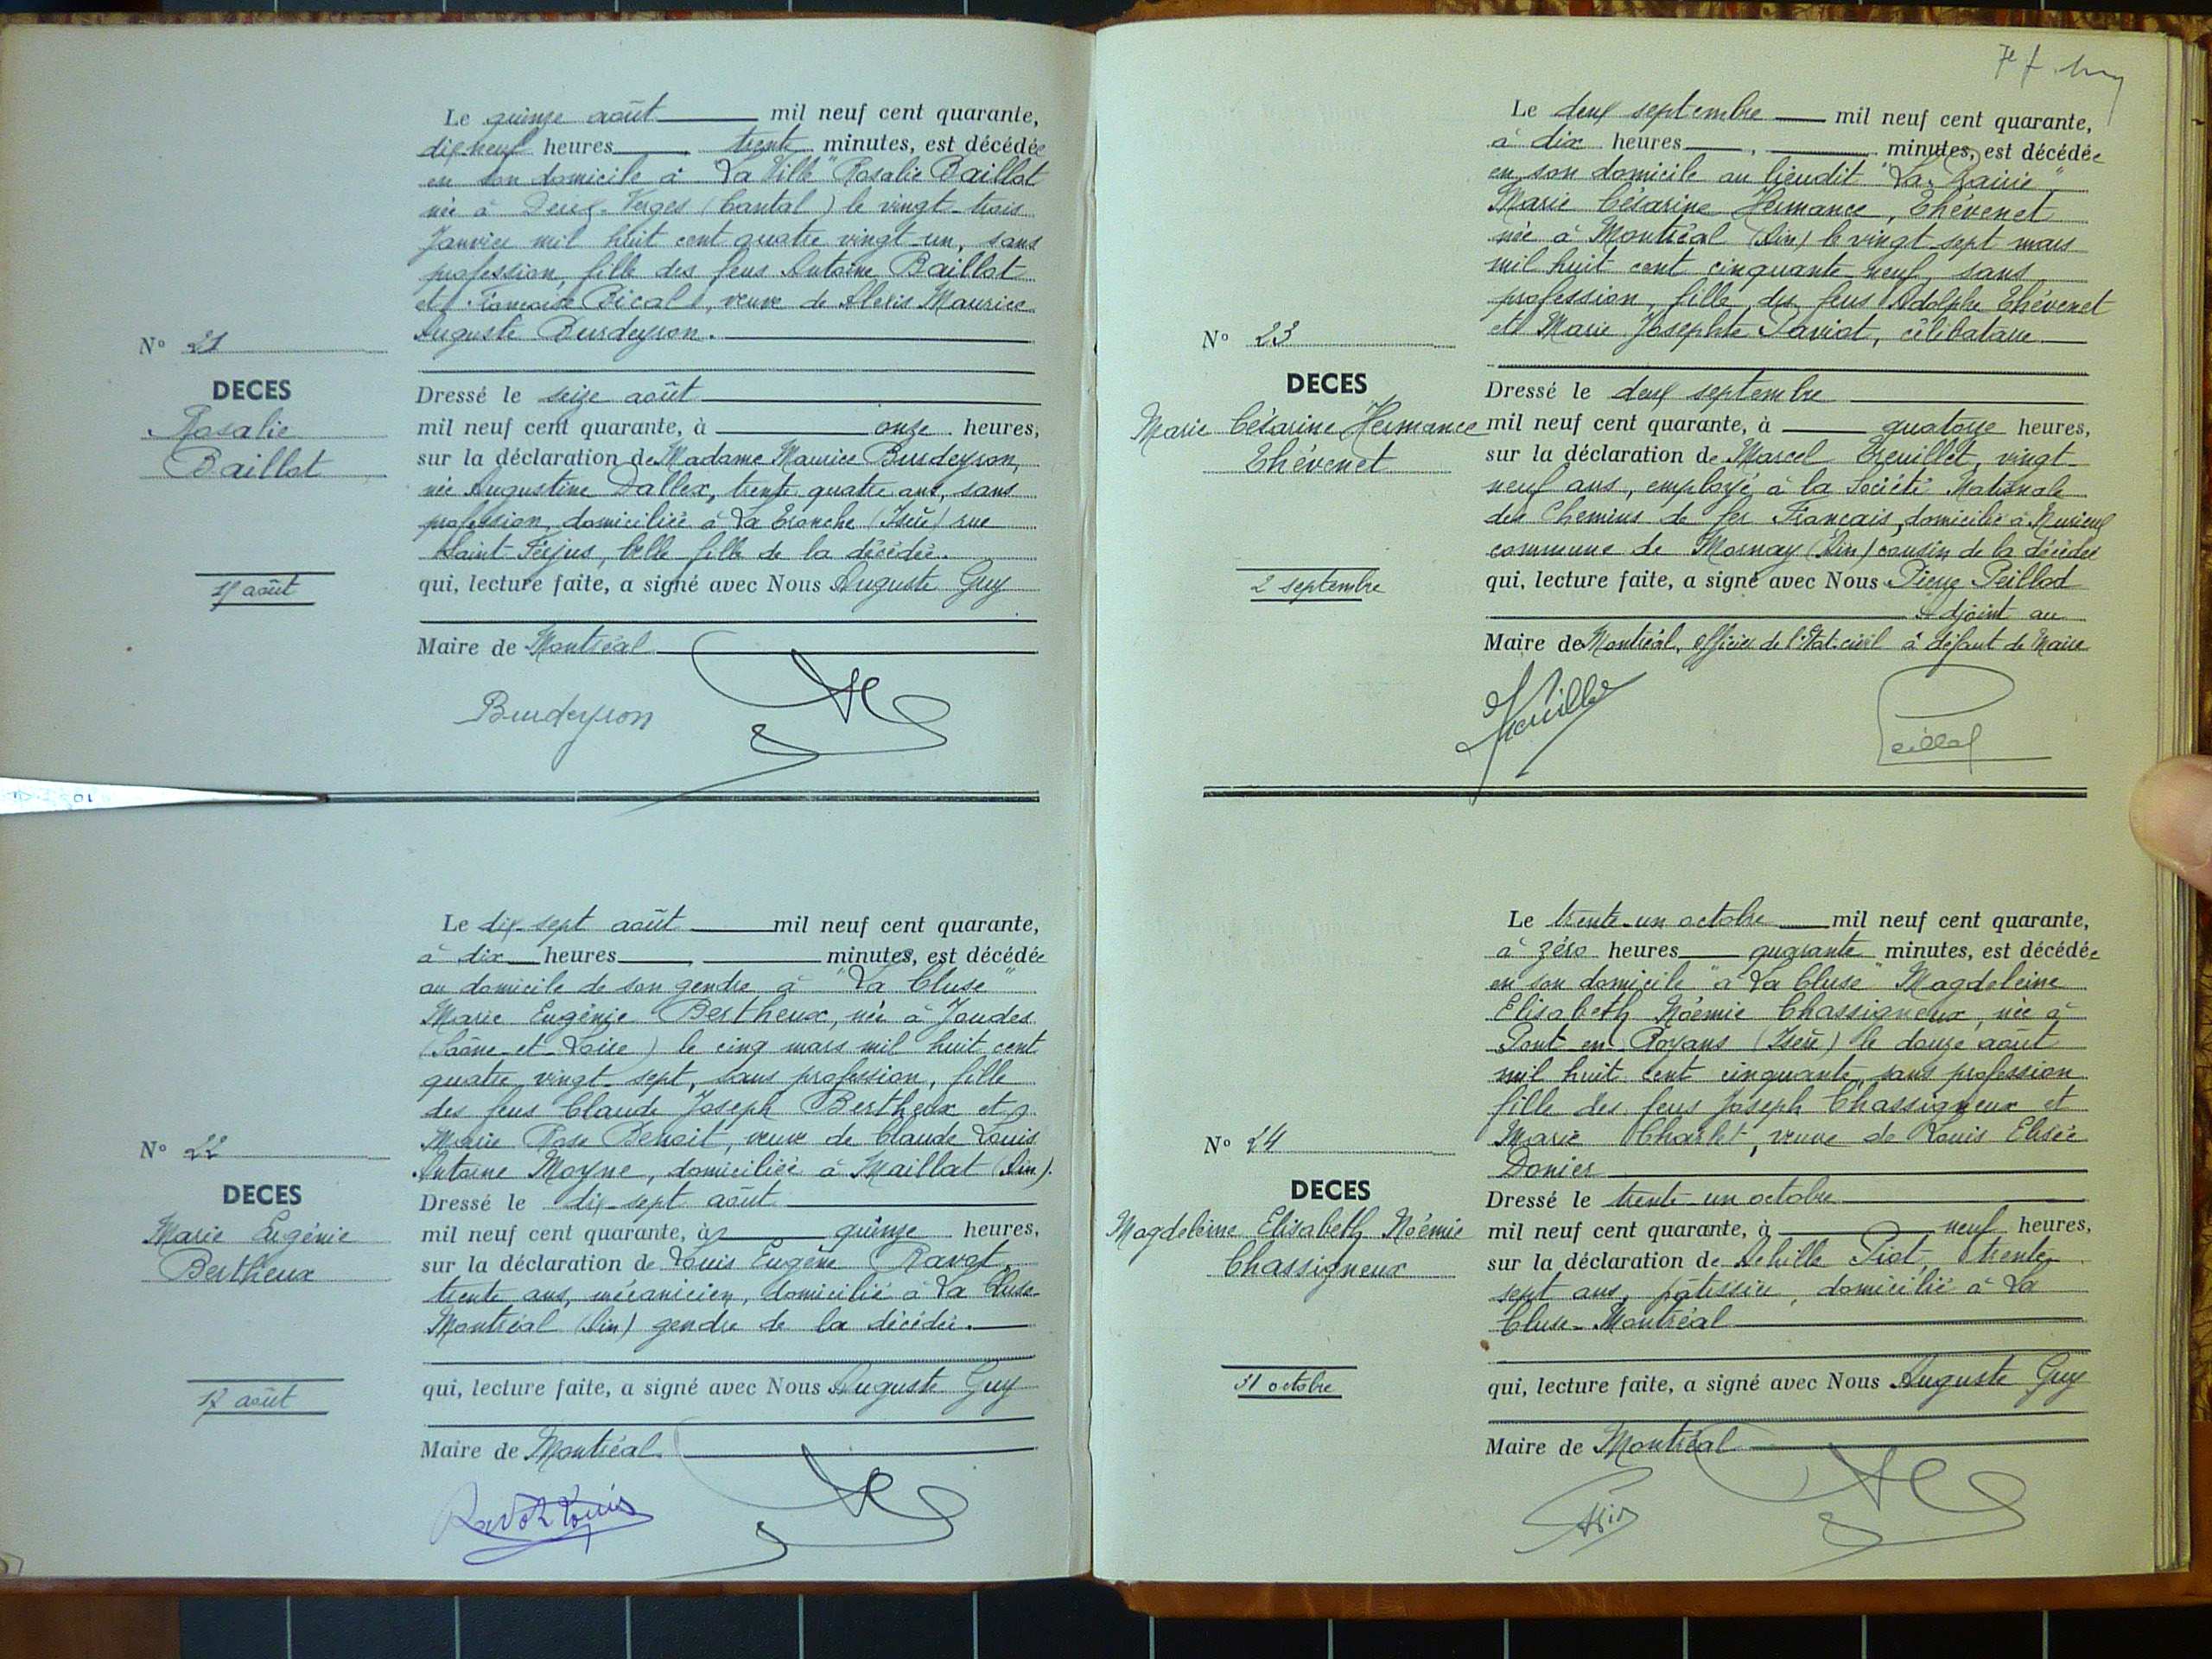 Le quinze août mil neuf cent quarante,
dix neuf heures, trente minutes, est décédée
en son domicile à "La Ville" Rosalie Baillot
née à Deux-Verges (Cantal) le vingt-trois
Janvier mil huit cent quatre vingt-un, sans
profession, fille des feus Antoine Baillot
et Françoise Bical, veuve de Alexis Maurice
Auguste Burdeyron.
N° 21
DECES
Rosalie
Baillot
Dressé le seize août
mil neuf cent quarante, à onze heures,
sur la déclaration de Madame Maurice Burdeyron,
née Augustine Dallex, trente quatre ans, sans
profession, domiciliée à La Tronche (Isère) rue
Saint-Ferjus, belle fille de la décédée.
août
qui, lecture faite, a signé avec Nous Auguste Guy
Maire de Montréal
Burdeyron
Le dix-sept août mil neuf cent quarante,
à dix heures, minutes, est décédée
au domicile de son gendre à "La Cluse"
Marie Eugénie Bertheux, née à Joudes
(Saône-et-Loire) le cinq mars mil huit cent
quatre vingt-sept, sans profession, fille
des feus Claude Joseph Bertheux et
Marie Rose Benoit, veuve de Claude Louis
Antoine Moyne, domiciliée à Maillat (Ain).
N° 22
DECES
Marie Eugénie
Bertheux
Dressé le dix-sept août
mil neuf cent quarante, à quinze heures,
sur la déclaration de Louis Eugène Ravot,
trente ans, mécanicien, domicilié à La Cluse-
Montréal (Ain) gendre de la décédée.
17 août
qui, lecture faite, a signé avec Nous Auguste Guy
Maire de Montréal
Ravot Louis
Le deux septembre mil neuf cent quarante,
à dix heures, minutes, est décédée
en son domicile au lieudit "La Prairie"
Marie Césarine Hermance, Thévenet
née à Montréal (Ain) le vingt-sept mars
mil huit cent cinquante neuf, sans
profession, fille des feus Adolphe Thévenet
et Marie Josephte Paviot, célibataire
N° 23
DECES
Marie Césarine Hermance
Thévenet
Dressé le deux septembre
mil neuf cent quarante, à quatorze heures,
sur la déclaration de Marcel Treuillet, vingt-
neuf ans, employé à la Société Nationale
des Chemins de fer Français, domicilié à
commune de Mornay (Ain) cousin de la décédée
2 septembre
qui, lecture faite, a signé avec Nous Pierre Peillod
Adjoint au
Maire de Montréal, officier de l'état-civil à défaut de Maire
Peillod
Le trente-un octobre mil neuf cent quarante,
à zéro heures quarante minutes, est décédée
en son domicile "à La Cluse" Magdeleine
Elisabeth Noémie Chassigneux, née à
Pont en Royans (Isère) le douze août
mil huit cent cinquante, sans profession
fille des feus Joseph Chassigneux et
Marie Charlet, veuve de Louis Elisée
Donier
N° 24
DECES
Magdeleine Elisabeth Noémie
Chassigneux
Dressé le trente-un octobre
mil neuf cent quarante, à neuf heures,
sur la déclaration de Achille Piot, trente
sept ans, pâtissier, domicilié à La
Cluse-Montréal
31 octobre
qui, lecture faite, a signé avec Nous Auguste Guy
Maire de Montréal